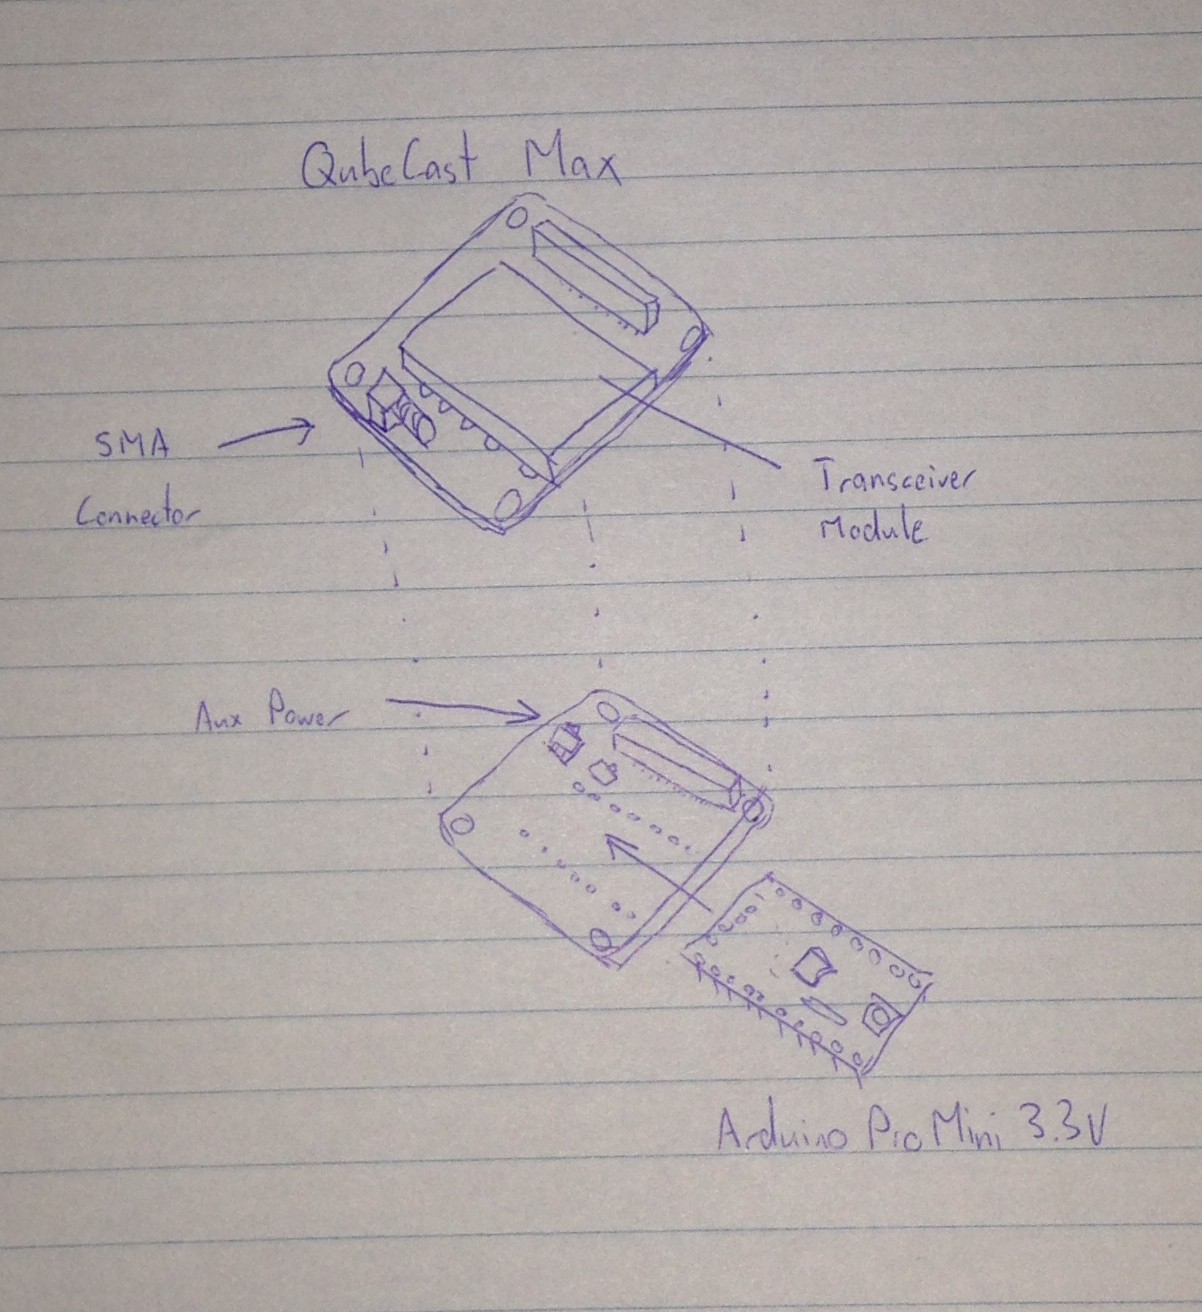 QubeCast Max
SMA
Connector
Transceiver
Module
Aux Power
Arduino Pro Mini 3.3V